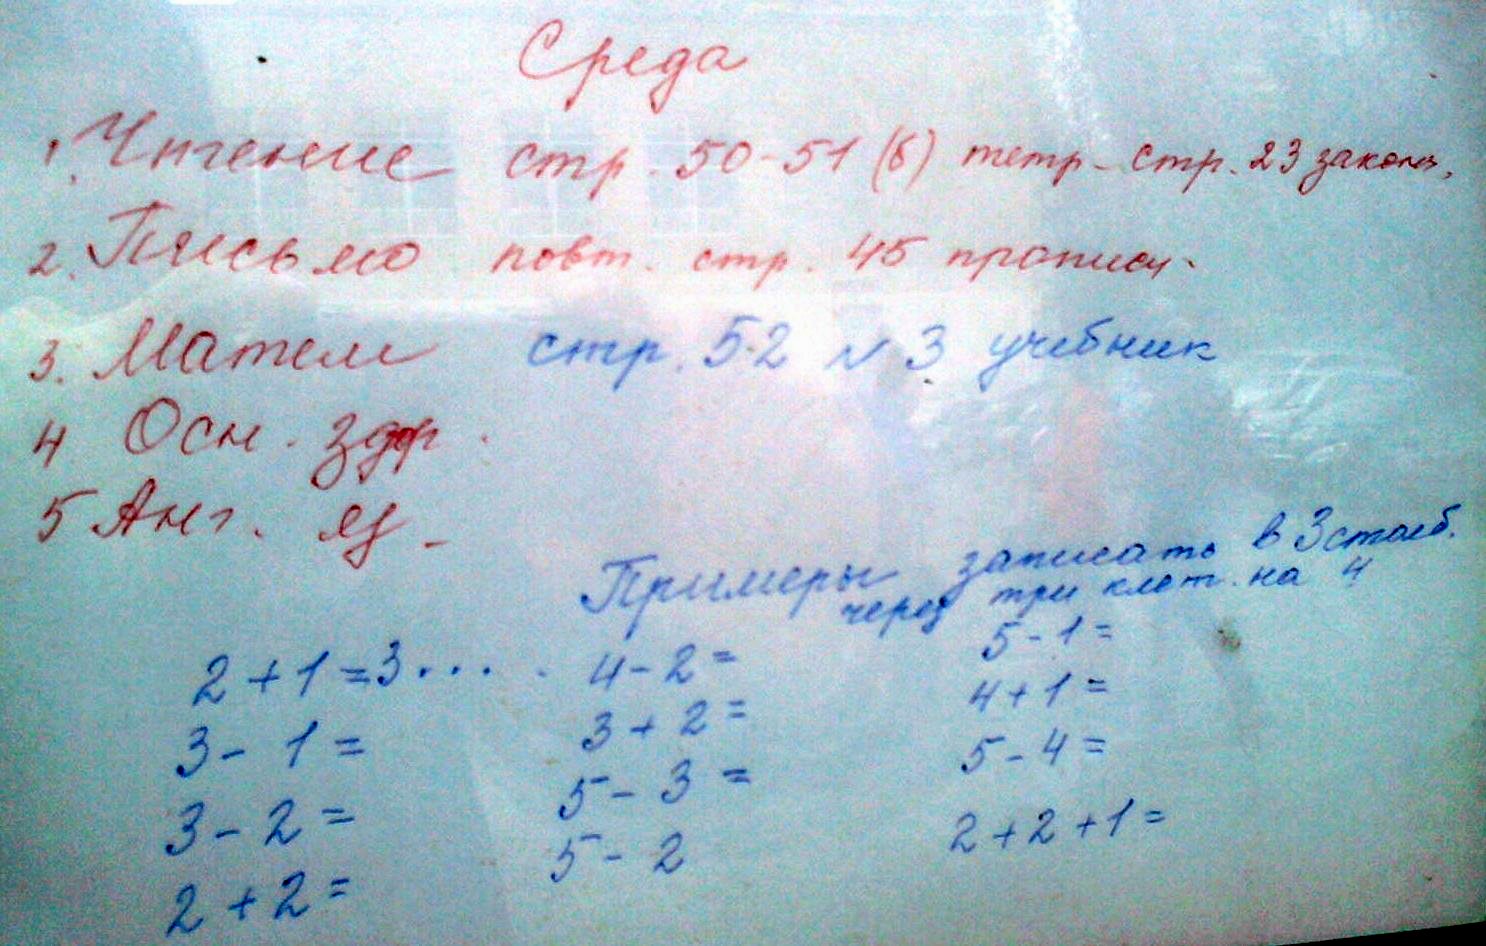 Среда
1. Чтение стр. 50-51 (б) тетр - стр. 23 законч.
2. Письмо повт. стр. 45 пропись
3. Матем стр. 52 № 3 учебник
4 Осн. здор.
5 Анг. яз -
Примеры записать в 3 столб.
через три клет. на 4
2 + 1 = 3 . . . . 4 - 2 = 5 - 1 =
3 - 1 = 3 + 2 = 4 + 1 =
3 - 2 = 5 - 3 = 5 - 4 =
2 + 2 = 5 - 2 2 + 2 + 1 =